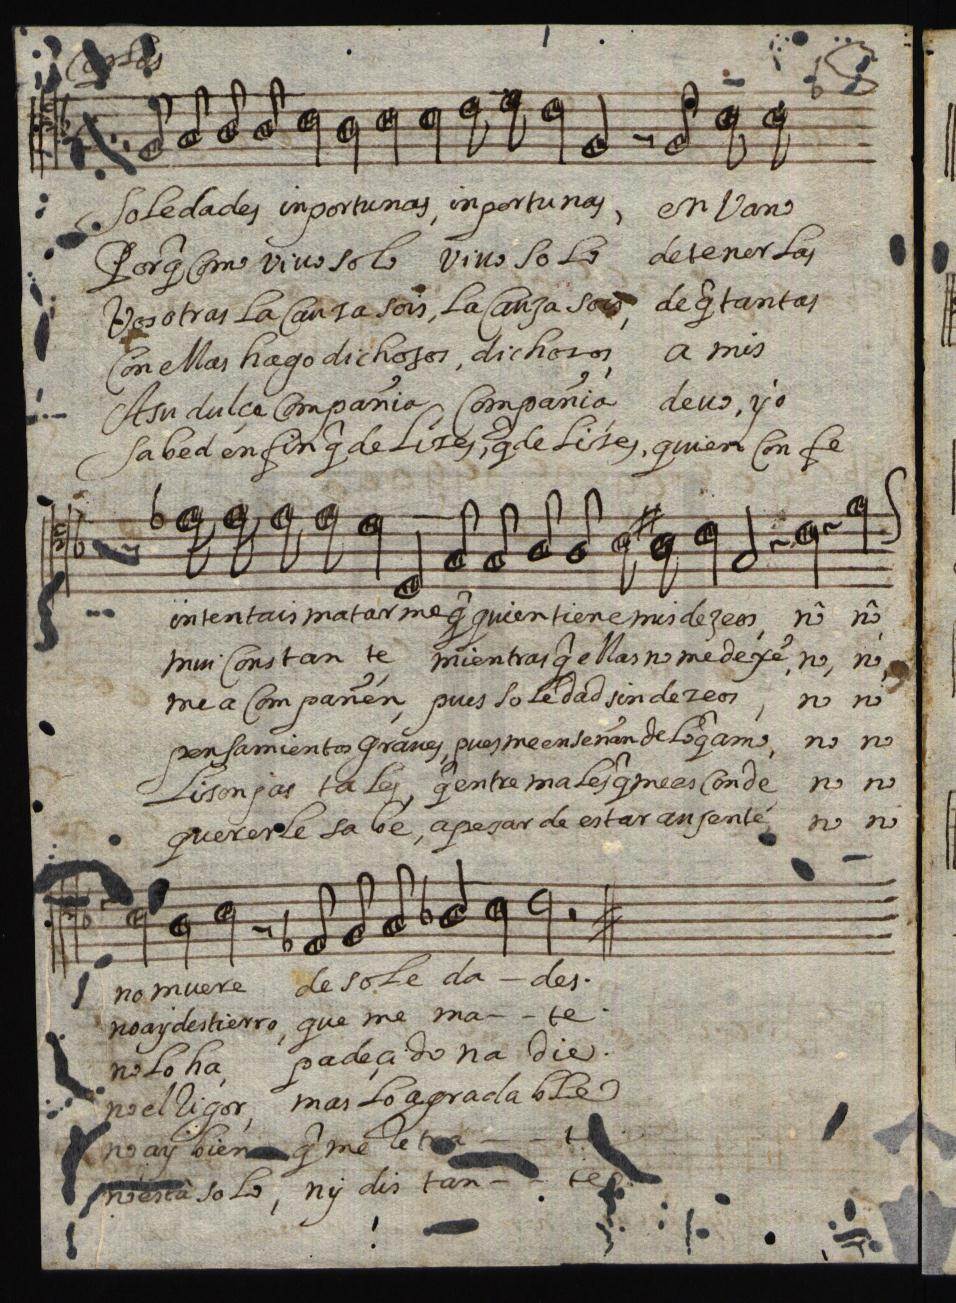 Coplas
Soledades inportunas, inportunas, en vano
Porq̃ Como vivo solo vivo solo detenerlas
Vosotras la Cauza sois, la Cauza sois, de q̃ tantas
Con ellas hago dichozos, dichozos, a mis
A su dulçe Compañia Compañia devo, yo
Sabed en fin q̃ de Lizes, q̃ de Lizes, quien Con fe
intentais matarme q̃ quien tiene mis dezeos, no no,
mui Constante, mientras q̃ ellas no me dexẽ, no, no,
me a Compañen, pues soledad sin dezeos, no no
pensamientos graves, pues me enseñan de lo q̃ amo, no no
Lisonjas tales, q̃ entre males q̃ me esConde no no
quererle sabe, a pezar de estar auzente, no no
no muere de soleda - des.
no ay destierro, que me ma - - te.
no lo ha, padeçido nadie.
no el Rigor, mas lo agradable
no ay bien q̃ me
no està solo, nÿ distan - - te.